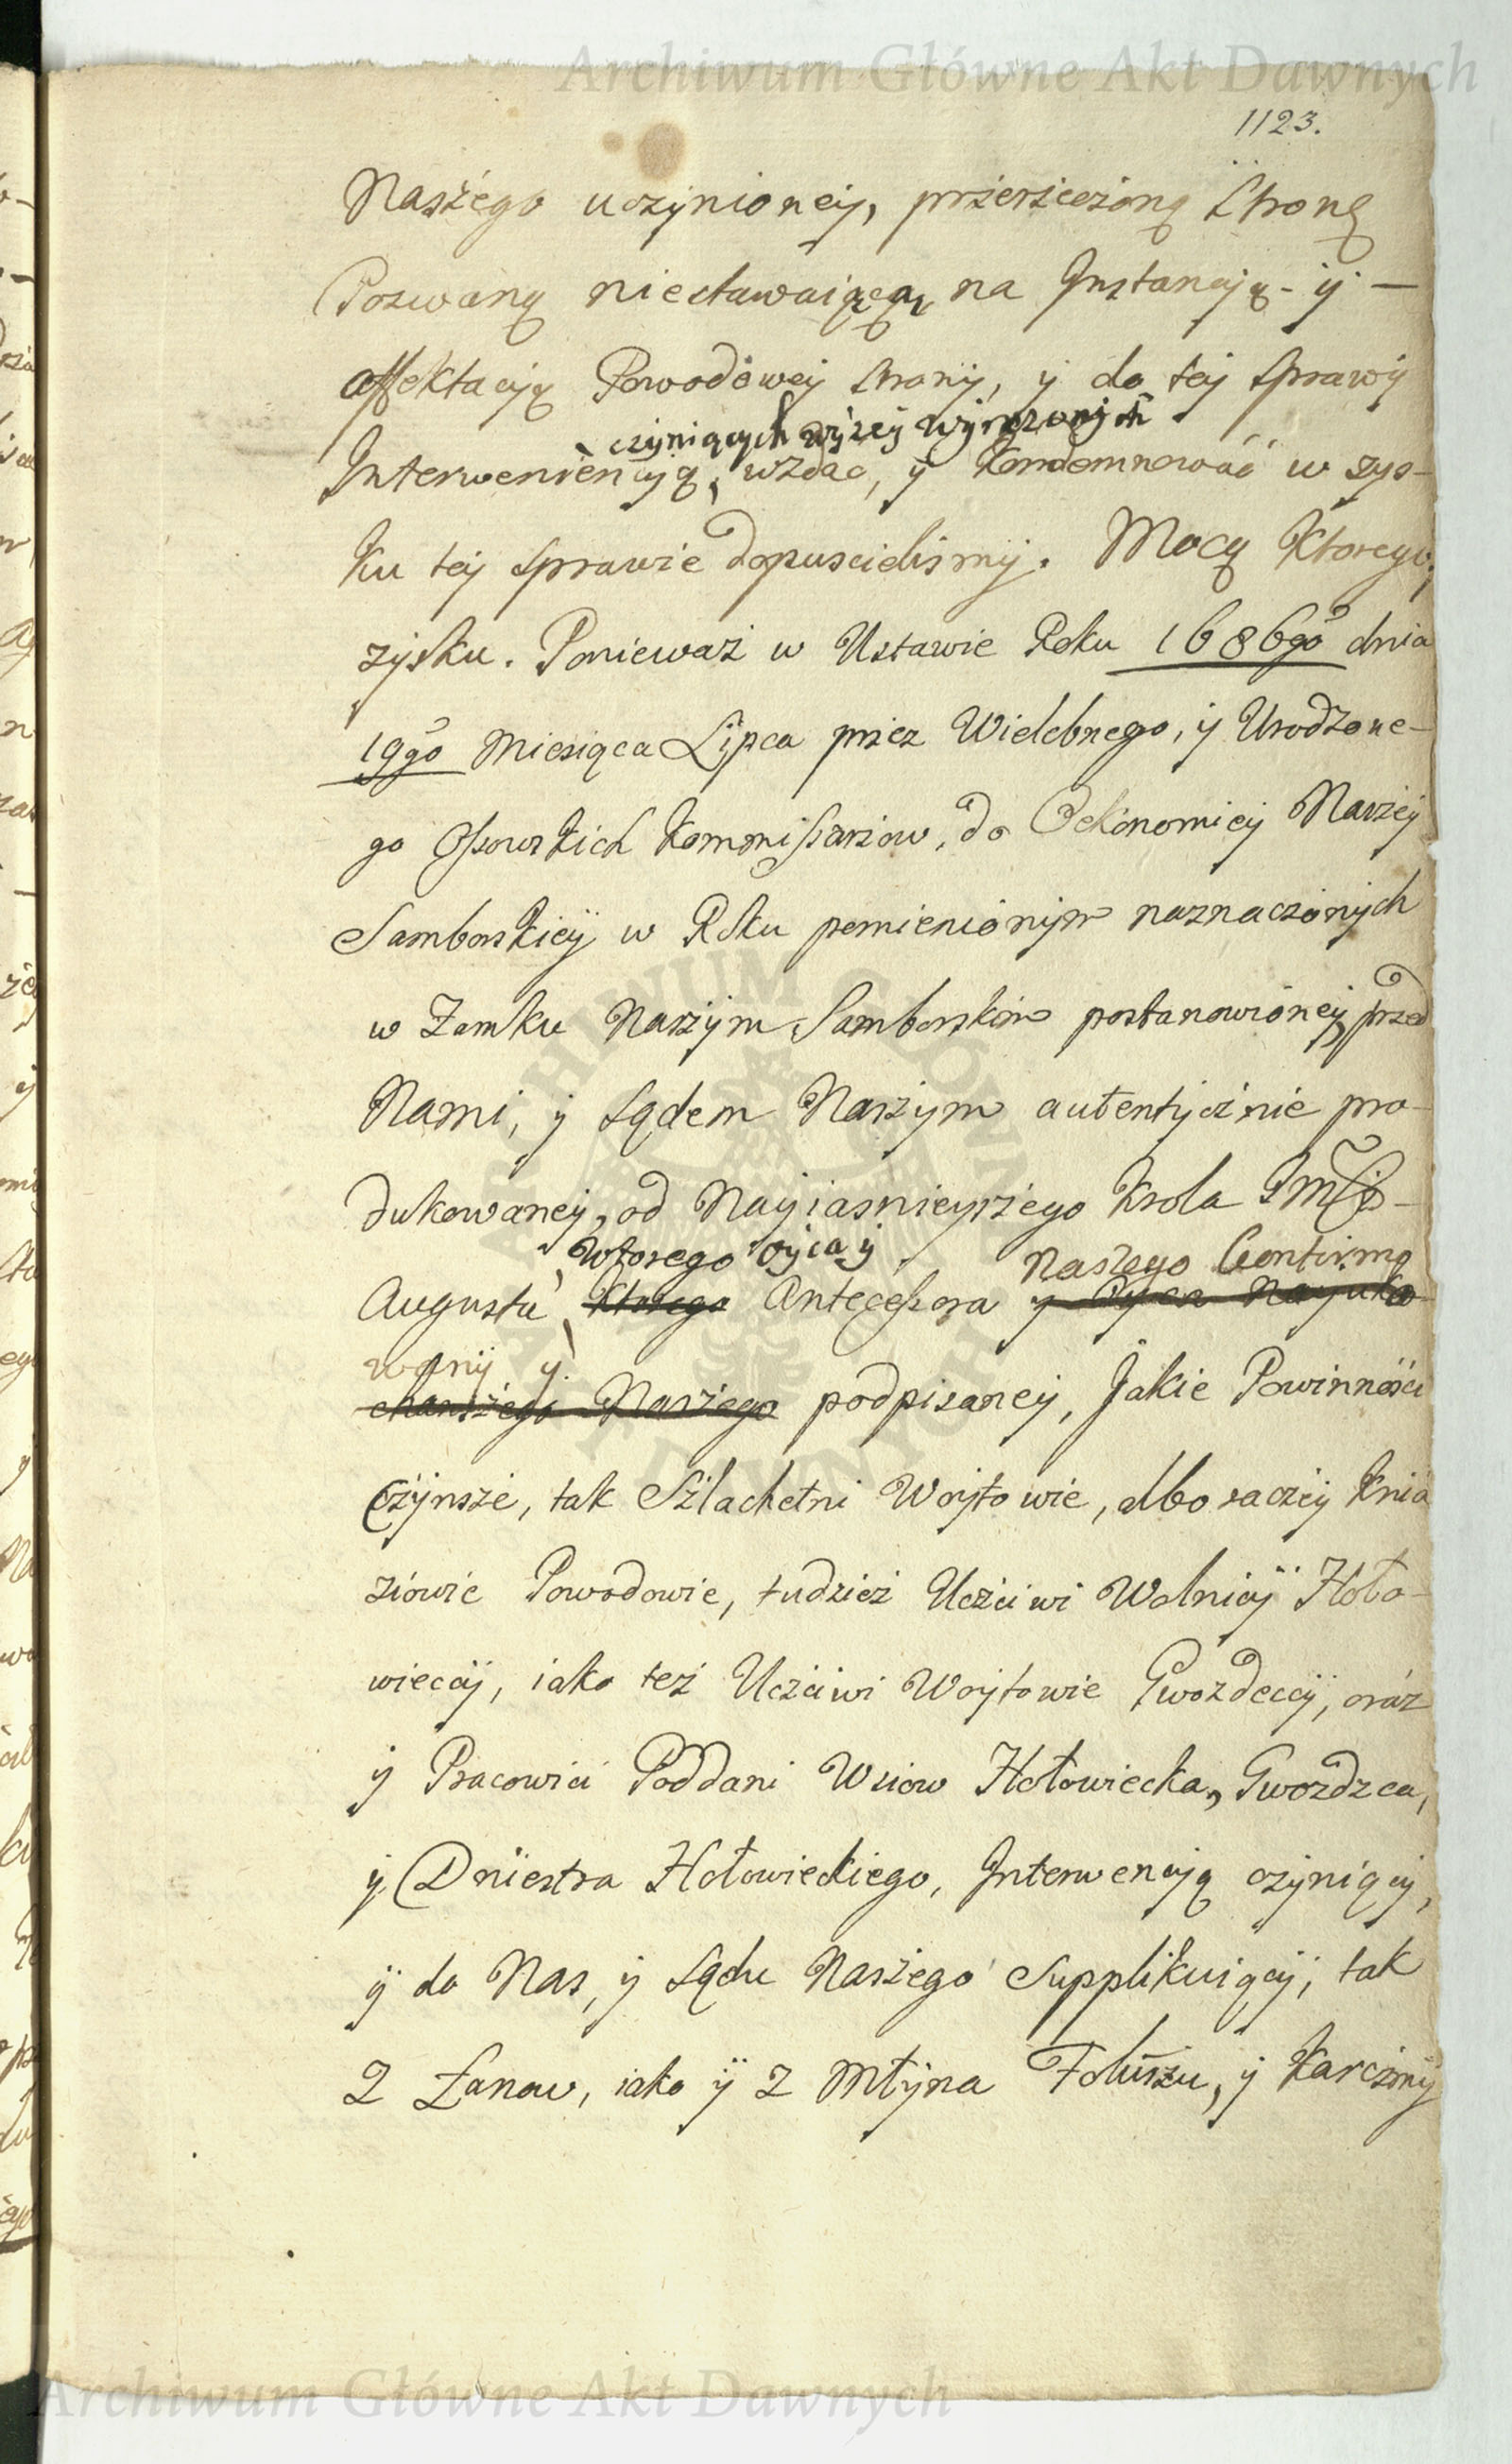 Archiwum Główne Akt Dawnych
1123.
Naszego uczynioney, przerzeczoną Stronę
Pozwaną niestawaiącą, na Instancyę - ÿ —
affektacyę Powodowey Strony, ÿ do tey Sprawy
czyniących wyżey wyrazonych
Interweniencyą, wzdac, ÿ Kondemnować w zys-
ku tey Sprawie dopuscielismy. Mocą Ktorego,
zysku. Ponieważ w Ustawie Roku 1686go dnia
19go Miesiąca Lipca przez Wielebnego, ÿ Urodzone-
go Ossowskich Kommissarzow, do Oekonomiey Naszey
Samborskiey w Roku pomienionym naznaczonych
w Zamku Naszym Samborskim postanowioney, przed
Nami, ÿ Sądem Naszym autentycznie pro-
dukowaney, od Nayiasnieyszego Krola
Wtorego oyca ÿ Naszego Contirmo
Augusta Ktorego Antecessora ÿ Oyca Nayuko-
wany ÿ
chanszego Naszego podpisaney, Jakie Powinności
Czynsze, tak Szlachetni Woytowie, albo raczey Knia
ziowie Powodowie, tudzież Uczciwi Wolnicy Hoło-
wieccy, iako też Uczciwi Woytowie Gwozdeccy, oraz
ÿ Pracowici Poddani Wsiow Hołowiecka, Gwozdzca,
ÿ Dniestra Hołowieckiego, Interwencyą czyniący,
ÿ do Nas, ÿ Sądu Naszego Supplikuiący, tak
z Łanow, iako ÿ z Młyna Foluszu, ÿ Karczmy
Archiwum Główne Akt Dawnych